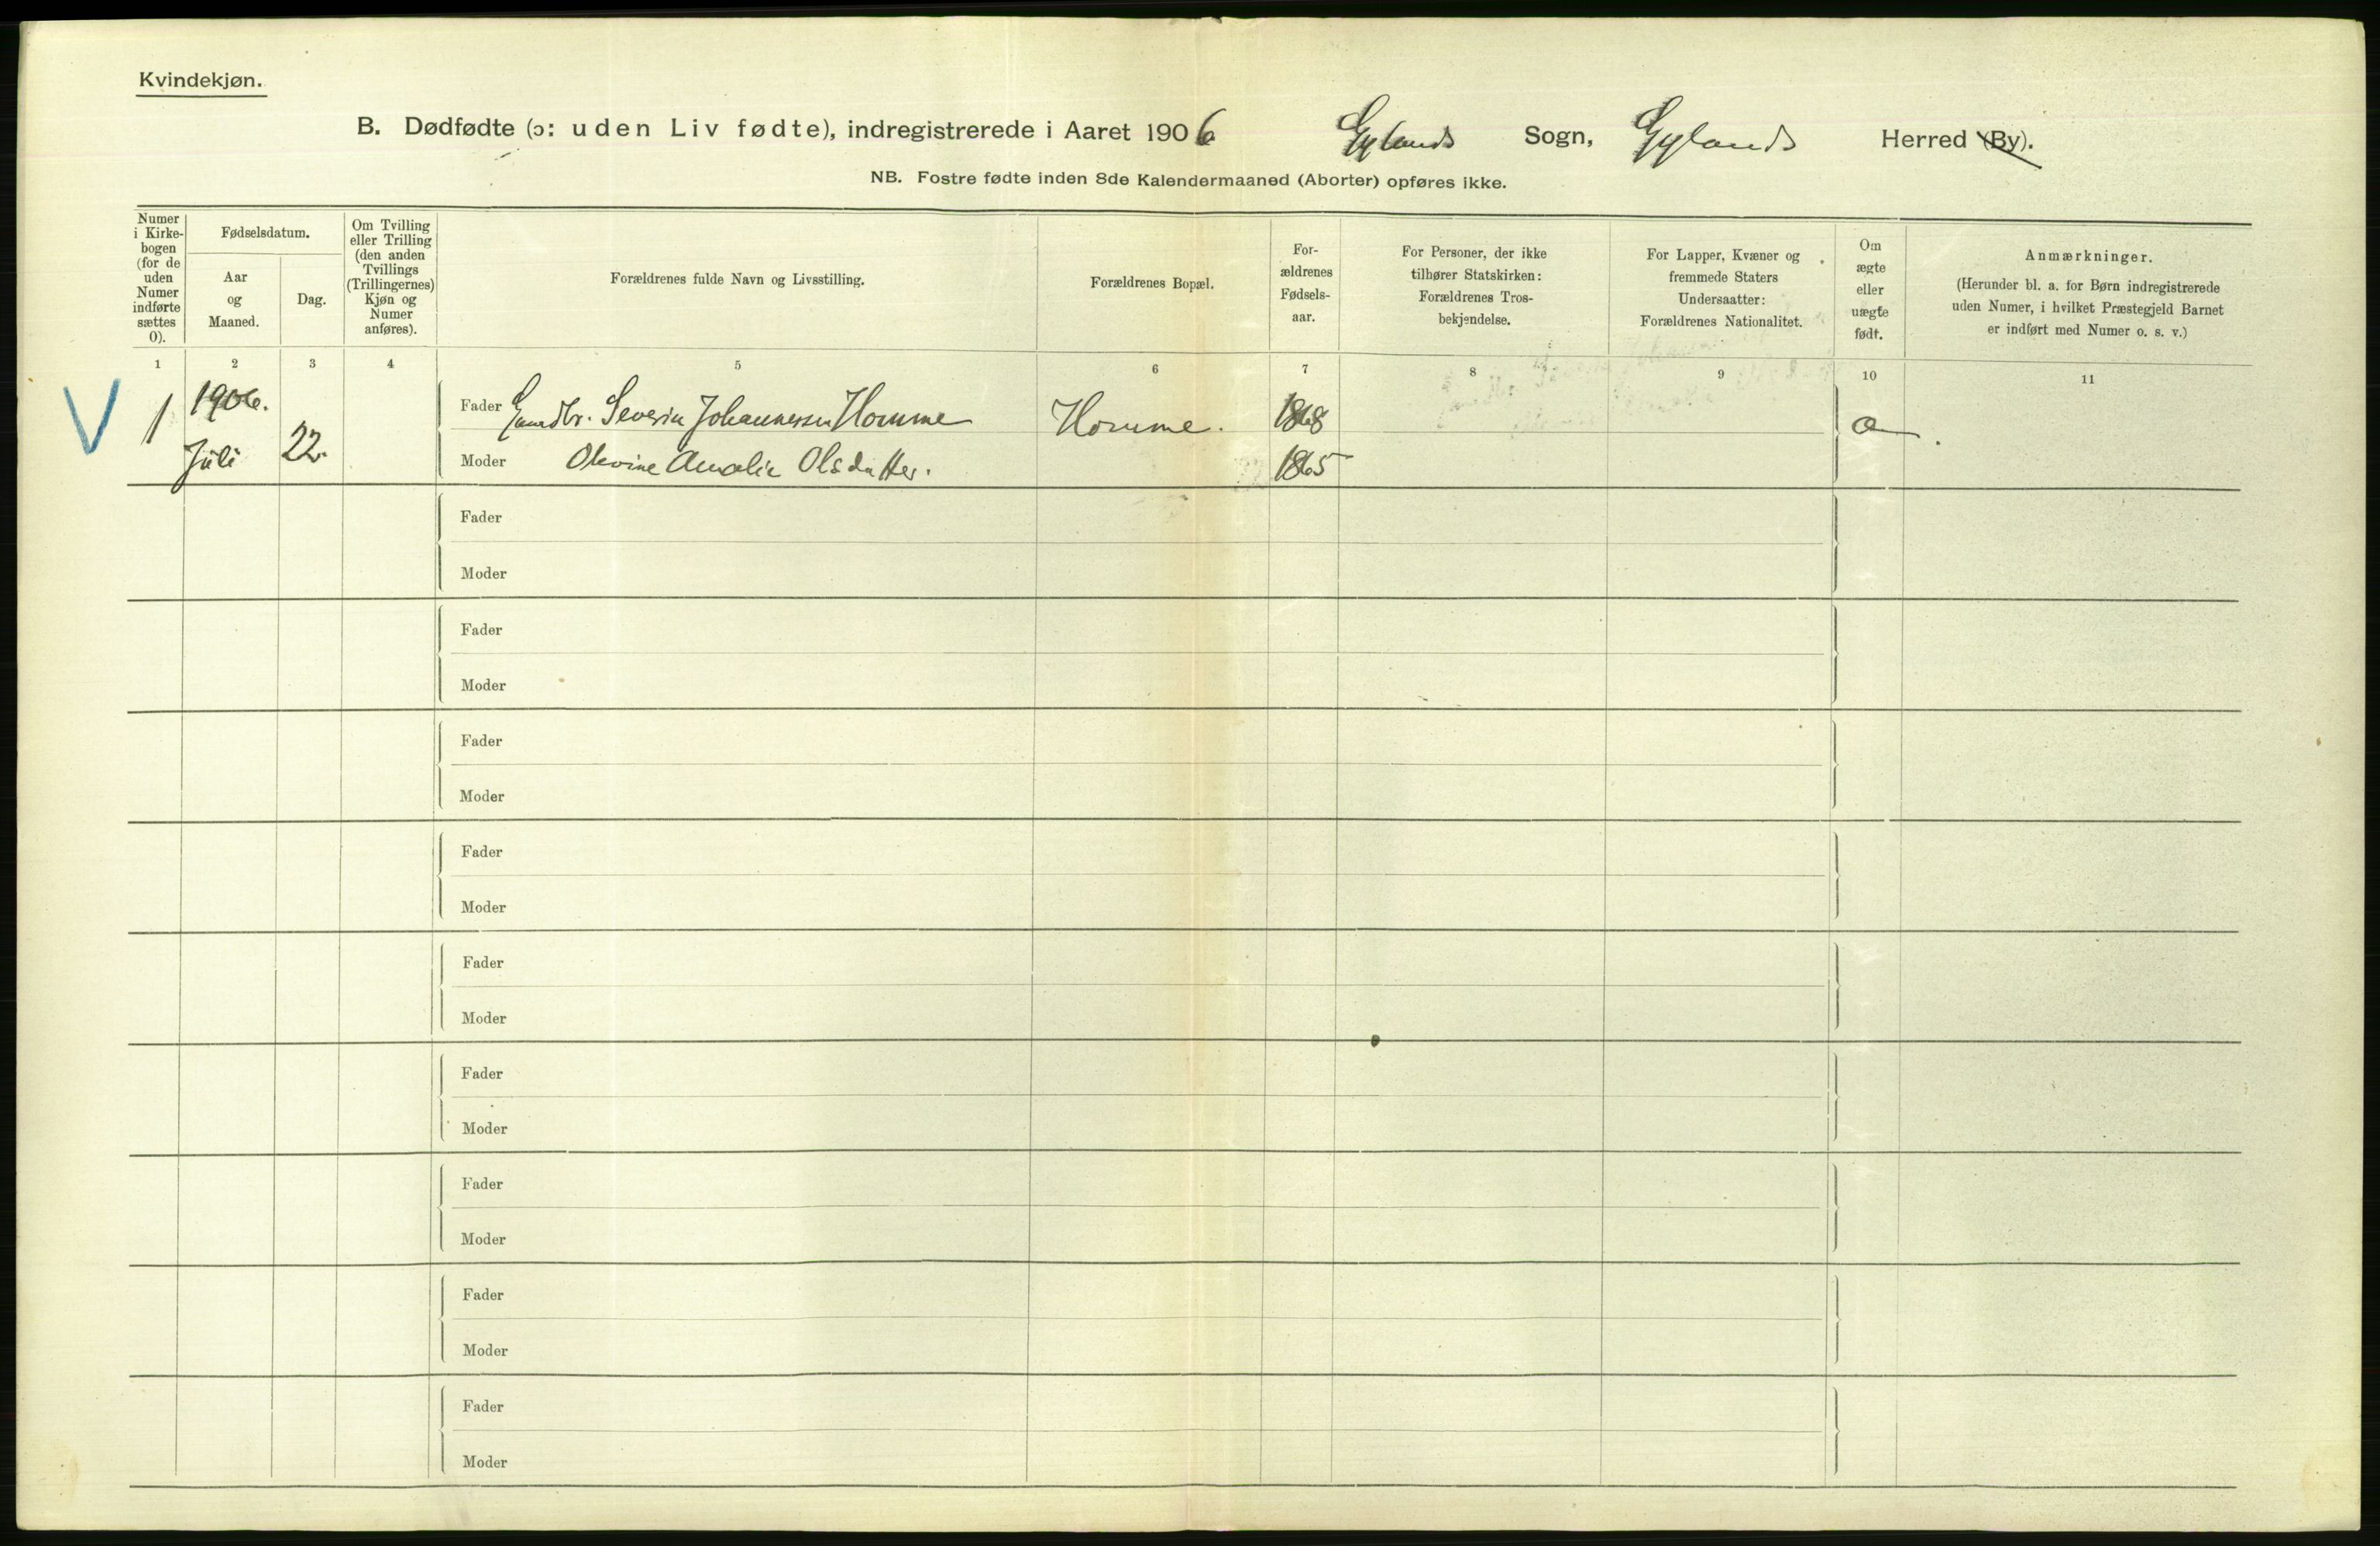 Kvindekjøn.
B. Dødfødte (ɔ: uden Liv fødte), indregistrerede i Aaret 1906 Gylands Sogn, Gylands Herred (By).
NB. Fostre fødte inden 8de Kalendermaaned (Aborter) opføres ikke.
Numer
i Kirke-
bogen
(for de
uden
Numer
indførte
sættes
0).
Fødselsdatum.
Aar
og
Maaned.
Dag.
Om Tvilling
eller Trilling
(den anden
Tvillings
(Trillingernes)
Kjøn og
Numer
anføres).
Forældrenes fulde Navn og Livsstilling.
Forældrenes Bopæl.
For-
ældrenes
Fødsels-
aar.
For Personer, der ikke
tilhører Statskirken:
Forældrenes Tros-
bekjendelse.
For Lapper, Kvæner og
fremmede Staters
Undersaatter:
Forældrenes Nationalitet.
Om
ægte
eller
uægte
født.
Anmærkninger.
(Herunder bl. a. for Børn indregistrerede
uden Numer, i hvilket Præstegjeld Barnet
er indført med Numer o. s. v.)
1 2 3 4 5 6 7 8 9 10 11
V 1 1906. Juli 22.
Fader Gaardbr. Severin Johannessen Homme Homme. 1868
Moder Olevine Amalie Olsdatter. 1865
Fader
Moder
Fader
Moder
Fader
Moder
Fader
Moder
Fader
Moder
Fader
Moder
Fader
Moder
Fader
Moder
Fader
Moder